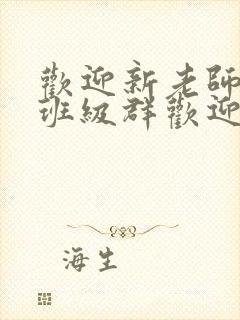 歡迎新老師
班級群歡迎
海生